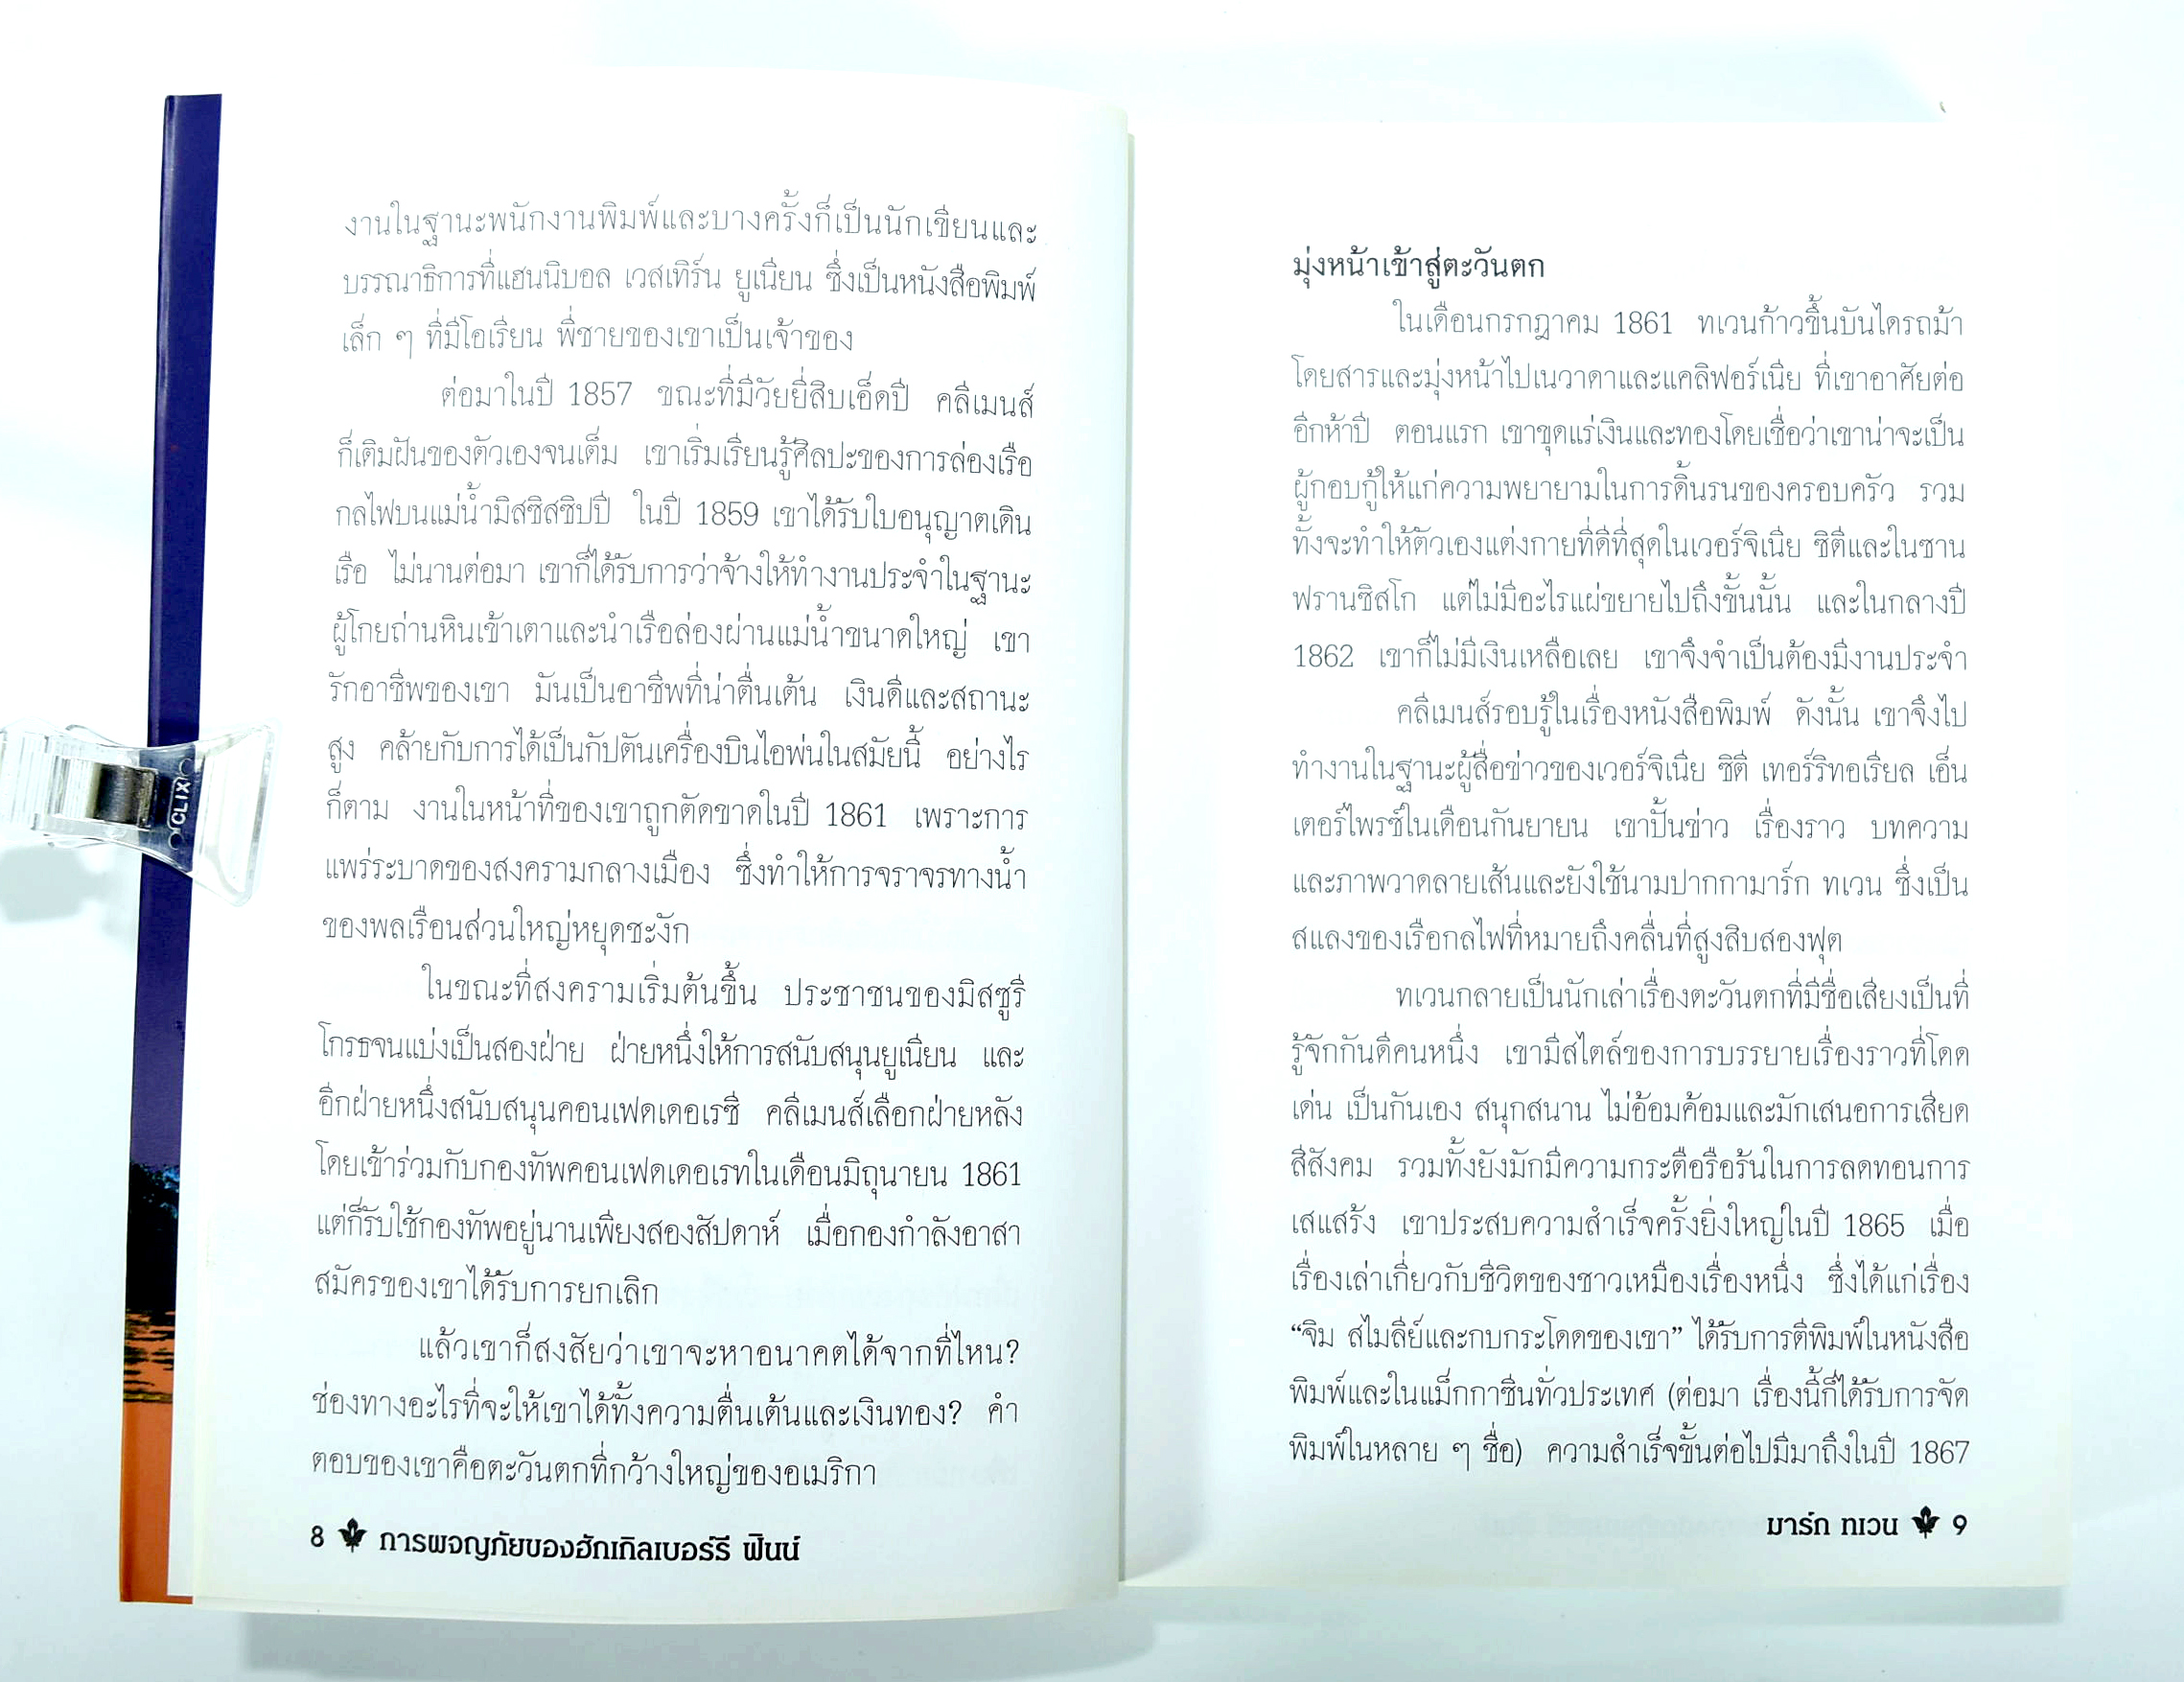 งานในฐานะพนักงานพิมพ์และบางครั้งก็เป็นนักเขียนและ
บรรณาธิการที่แฮนนิบอล เวสเทิร์น ยูเนียน ซึ่งเป็นหนังสือพิมพ์
เล็ก ๆ ที่มีโอเรียน พี่ชายของเขาเป็นเจ้าของ
ต่อมาในปี 1857 ขณะที่มีวัยยี่สิบเอ็ดปี คลีเมนส์
ก็เติมฝันของตัวเองจนเต็ม เขาเริ่มเรียนรู้ศิลปะของการล่องเรือ
กลไฟบนแม่น้ำมิสซิสซิปปี ในปี 1859 เขาได้รับใบอนุญาตเดิน
เรือ ไม่นานต่อมา เขาก็ได้รับการว่าจ้างให้ทำงานประจำในฐานะ
ผู้โกยถ่านหินเข้าเตาและนำเรือล่องผ่านแม่น้ำขนาดใหญ่ เขา
รักอาชีพของเขา มันเป็นอาชีพที่น่าตื่นเต้น เงินดีและสถานะ
สูง คล้ายกับการได้เป็นกัปตันเครื่องบินไอพ่นในสมัยนี้ อย่างไร
ก็ตาม งานในหน้าที่ของเขาถูกตัดขาดในปี 1861 เพราะการ
แพร่ระบาดของสงครามกลางเมือง ซึ่งทำให้การจราจรทางน้ำ
ของพลเรือนส่วนใหญ่หยุดชะงัก
ในขณะที่สงครามเริ่มต้นขึ้น ประชาชนของมิสซูรี
โกรธจนแบ่งเป็นสองฝ่าย ฝ่ายหนึ่งให้การสนับสนุนยูเนียน และ
อีกฝ่ายหนึ่งสนับสนุนคอนเฟดเดอเรซี คลีเมนส์เลือกฝ่ายหลัง
โดยเข้าร่วมกับกองทัพคอนเฟดเดอเรทในเดือนมิถุนายน 1861
แต่ก็รับใช้กองทัพอยู่นานเพียงสองสัปดาห์ เมื่อกองกำลังอาสา
สมัครของเขาได้รับการยกเลิก
แล้วเขาก็สงสัยว่าเขาจะหาอนาคตได้จากที่ไหน?
ช่องทางอะไรที่จะให้เขาได้ทั้งความตื่นเต้นและเงินทอง? คำ
ตอบของเขาคือตะวันตกที่กว้างใหญ่ของอเมริกา
8 การผจญภัยของฮักเกิลเบอร์รี ฟินน์
CLIX
มุ่งหน้าเข้าสู่ตะวันตก
ในเดือนกรกฎาคม 1861 ทเวนก้าวขึ้นบันไดรถม้า
โดยสารและมุ่งหน้าไปเนวาดาและแคลิฟอร์เนีย ที่เขาอาศัยต่อ
อีกห้าปี ตอนแรก เขาขุดแร่เงินและทองโดยเชื่อว่าเขาน่าจะเป็น
ผู้กอบกู้ให้แก่ความพยายามในการดิ้นรนของครอบครัว รวม
ทั้งจะทำให้ตัวเองแต่งกายที่ดีที่สุดในเวอร์จิเนีย ซิตีและในซาน
ฟรานซิสโก แต่ไม่มีอะไรแผ่ขยายไปถึงขั้นนั้น และในกลางปี
1862 เขาก็ไม่มีเงินเหลือเลย เขาจึงจำเป็นต้องมีงานประจำ
คลีเมนส์รอบรู้ในเรื่องหนังสือพิมพ์ ดังนั้น เขาจึงไป
ทำงานในฐานะผู้สื่อข่าวของเวอร์จิเนีย ซิตี เทอร์ริทอเรียล เอ็น
เตอร์ไพรซ์ในเดือนกันยายน เขาปั้นข่าว เรื่องราว บทความ
และภาพวาดลายเส้นและยังใช้นามปากกามาร์ก ทเวน ซึ่งเป็น
สแลงของเรือกลไฟที่หมายถึงคลื่นที่สูงสิบสองฟุต
ทเวนกลายเป็นนักเล่าเรื่องตะวันตกที่มีชื่อเสียงเป็นที่
รู้จักกันดีคนหนึ่ง เขามีสไตล์ของการบรรยายเรื่องราวที่โดด
เด่น เป็นกันเอง สนุกสนาน ไม่อ้อมค้อมและมักเสนอการเสียด
สีสังคม รวมทั้งยังมักมีความกระตือรือร้นในการลดทอนการ
เสแสร้ง เขาประสบความสำเร็จครั้งยิ่งใหญ่ในปี 1865 เมื่อ
เรื่องเล่าเกี่ยวกับชีวิตของชาวเหมืองเรื่องหนึ่ง ซึ่งได้แก่เรื่อง
“จิม สไมลีย์และกบกระโดดของเขา” ได้รับการตีพิมพ์ในหนังสือ
พิมพ์และในแม็กกาซีนทั่วประเทศ (ต่อมา เรื่องนี้ก็ได้รับการจัด
พิมพ์ในหลาย ๆ ชื่อ) ความสำเร็จขั้นต่อไปมีมาถึงในปี 1867
มาร์ก ทเวน 9